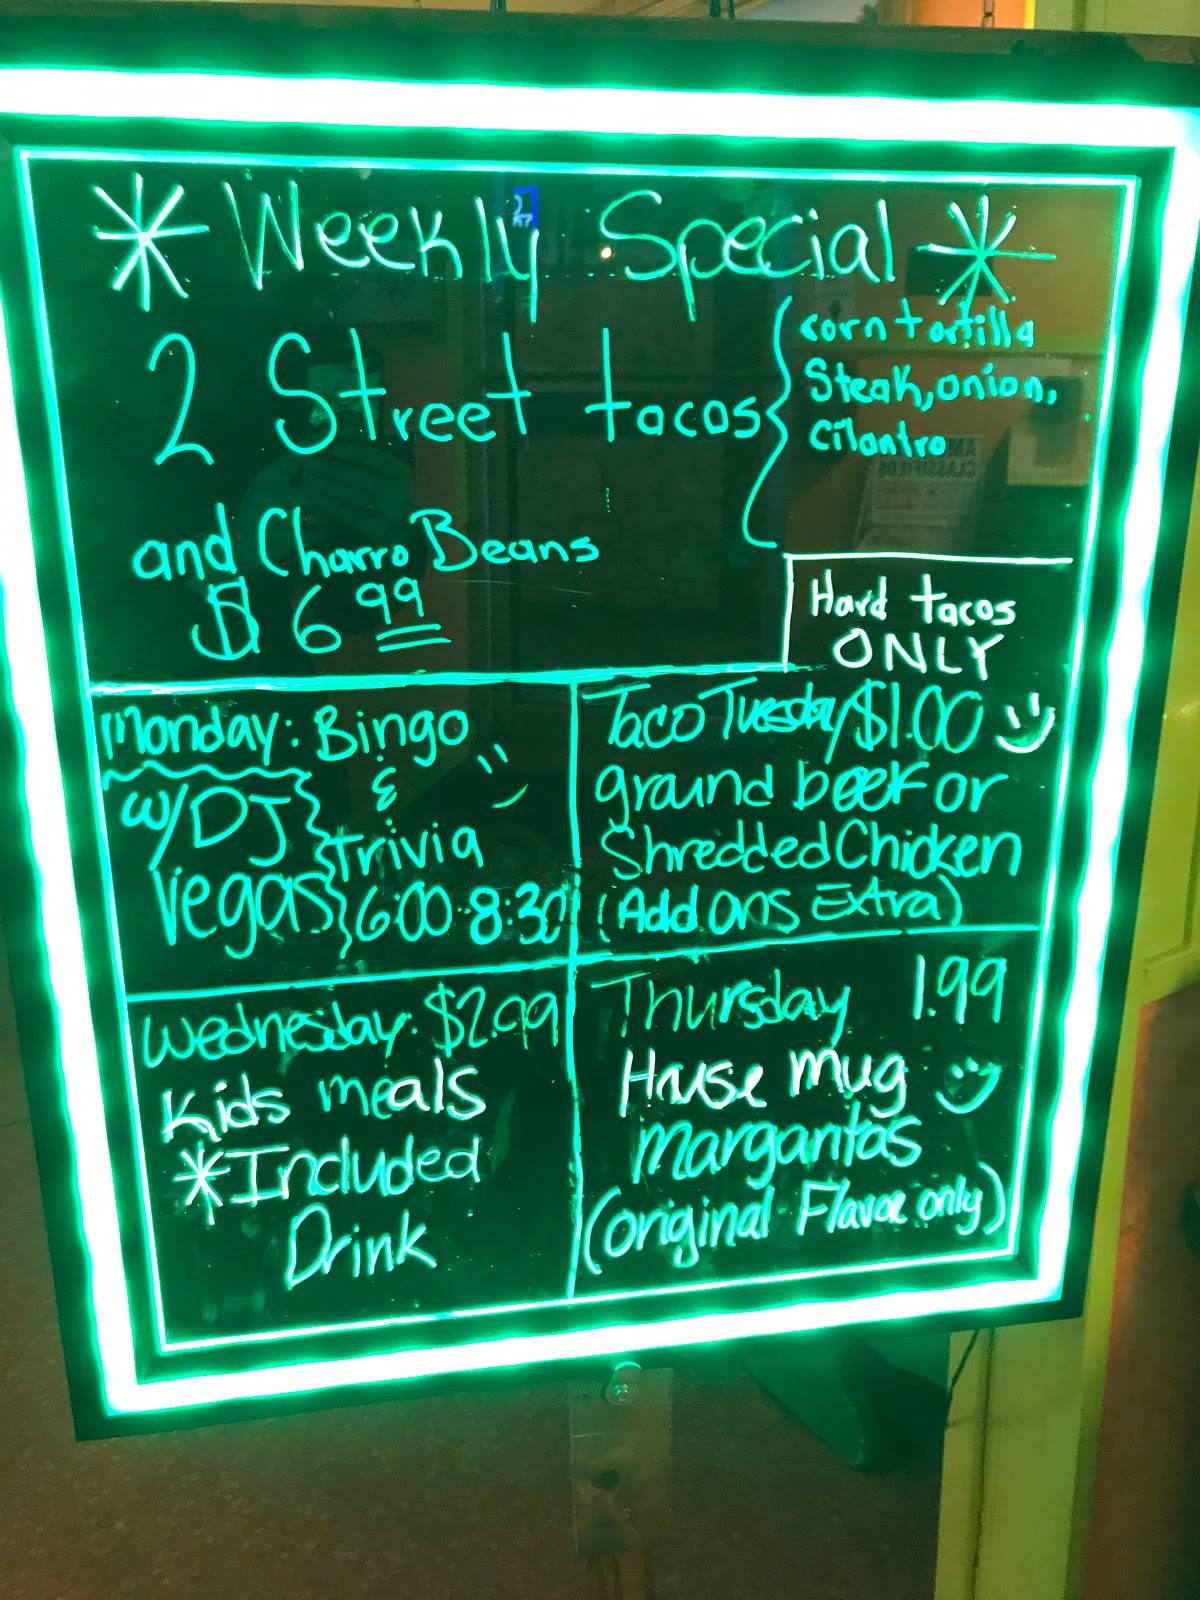 * Weekly Special *
2 Street tacos { corn tortilla
Steak, onion,
Cilantro
and Charro Beans
$ 6 99
Hard tacos
ONLY
Monday: Bingo
&
Trivia
6:00-8:30
w/DJ
Vegas
Taco Tuesday $1.00
ground beef or
Shredded Chicken
(Add ons Extra)
Wednesday: $2.99
Kids meals
*Included
Drink
Thursday 1.99
House mug
margaritas
(original Flavor only)